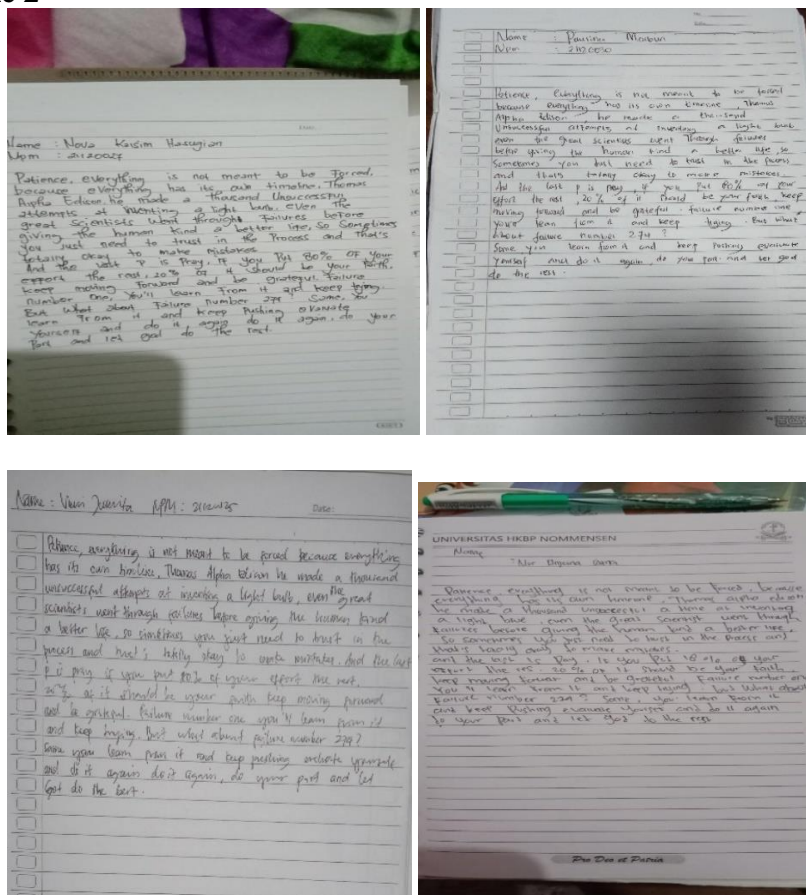 Name : Nova Kasim Hasugian
Npm : 21120027
Patience, everything is not meant to be Forced,
because everything has its own timeline. Thomas
Alpha Edison, he made a thousand Unsuccessful
attempts at inventing a light bulb. even the
great scientists went throught Failures before
giving the human kind a better life, so Sometimes
You Just need to trust in the Process and that's
totally okay to make mistakes
And the last P is Pray, if You Put 80% OF Your
effort the rest, 20% of it should be Your Faith.
keep moving Forward and be grateful. Failure
number one, You'll learn From it and keep trying.
But what about Failure number 274 Same, You
learn From it and keep Pushing evaluate
Yourself and do it, again do it again, do your
Part and let god do the rest.
Name :
Npm :
Patience, everything is not meant to be forced
because everything has its own timeline, Thomas
Alpha Edison he made a thousand
Unsuccessful attempts at inventing a light bulb
even the great scientists went Through failures
before giving the human kind a better life, so
Sometimes you just need to trust in the process
and thats totaly okay to make mistakes.
And the last p is pray, if you put 80% of your
effort the rest, 20% of it should be your faith, keep
moving forward and be grateful. failure number one
your learn from it and keep trying. But what
about failure number 274 ?
Same you learn from it and keep pushing evaluate
yourself and do it again, do you part and let god
do the rest.
Name : Juwita NPM :
Date:
Patience, everything is not meant to be forced because everything
has its own timeline, Thomas Alpha Edison he made a thousand
unsuccessful attempts at inventing a light bulb, even the great
scientists went through failures before giving the human kind
a better life, so sometimes you just need to trust in the
process and that's totally okay to make mistakes. And the last
p is pray if you put 80% of your effort the rest
20% of it should be your faith keep moving forward
and be grateful. Failure number one you'll learn from it
and keep trying. But what about failure number 274?
Same you learn from it and keep pushing evaluate yourself
and do it again do it again, do your part and let
God do the best.
UNIVERSITAS HKBP NOMMENSEN
Name
: Nur
Patience everything is not meant to be forced, because
everything has its own timeline, Thomas alpha edison
he make a thousand at
a light, even the great Scientist went through
failures before giving the human kind a better life.
So Sometimes You just need to trust in the and
that's totally okay to make
and the last is Pray, if You Put % of your
effort the 20% of it should be Your Faith
keep moving forward and be grateful Failure number one
You'll learn From it and keep trying, but What about
Failure number 274 ? Same, You learn From it
and keep Pushing evaluate Yourself and do it again
do Your Part and let god do the rest
Pro Deo et Patria